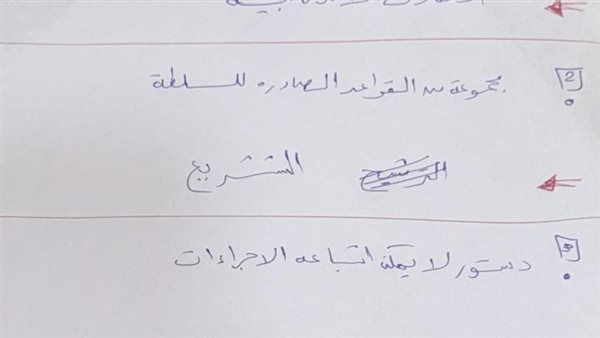 2
مجموعة من القواعد الصادره للسلطة
التشريع
3
دستور لا يمكن اتباعه الاجراءات